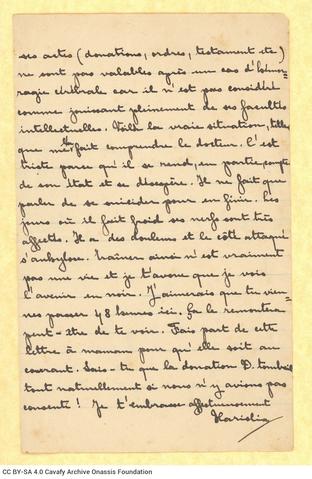 ses actes (donations, ordres, testament etc)
ne sont pas valables après un cas d'hémor-
ragie cérébrale car il n'est pas considéré
comme jouissant pleinement de ses facultés
intellectuelles. Voilà la vraie situation, telle
que me l'a fait comprendre le docteur. C'est
triste parce qu'il se rend, en partie, compte
de son état et se désespère. Il ne fait que
parler de se suicider pour en finir. Les
jours où il fait froid ses nerfs sont très
affectés. Il a des douleurs et le côté attaqué
s'ankylose. Traîner ainsi n'est vraiment
pas une vie et je t'avoue que je vois
l'avenir en noir. J'aimerais que tu vien-
nes passer 48 heures ici. Ça le remontera
peut-être de te voir. Fais part de cette
lettre à maman pour qu'elle soit au
courant. Sais-tu que la donation D. tombait
tout naturellement si nous n'y avions pas
consenti! Je t'embrasse affectueusement
Hariclia
CC BY-SA 4.0 Cavafy Archive Onassis Foundation